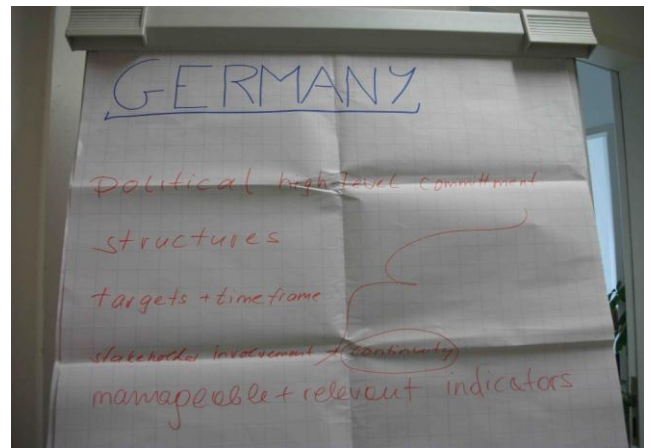 GERMANY
political high-level committment
structures
targets + timeframe
stakeholder involvement + continuity
manageable + relevant indicators